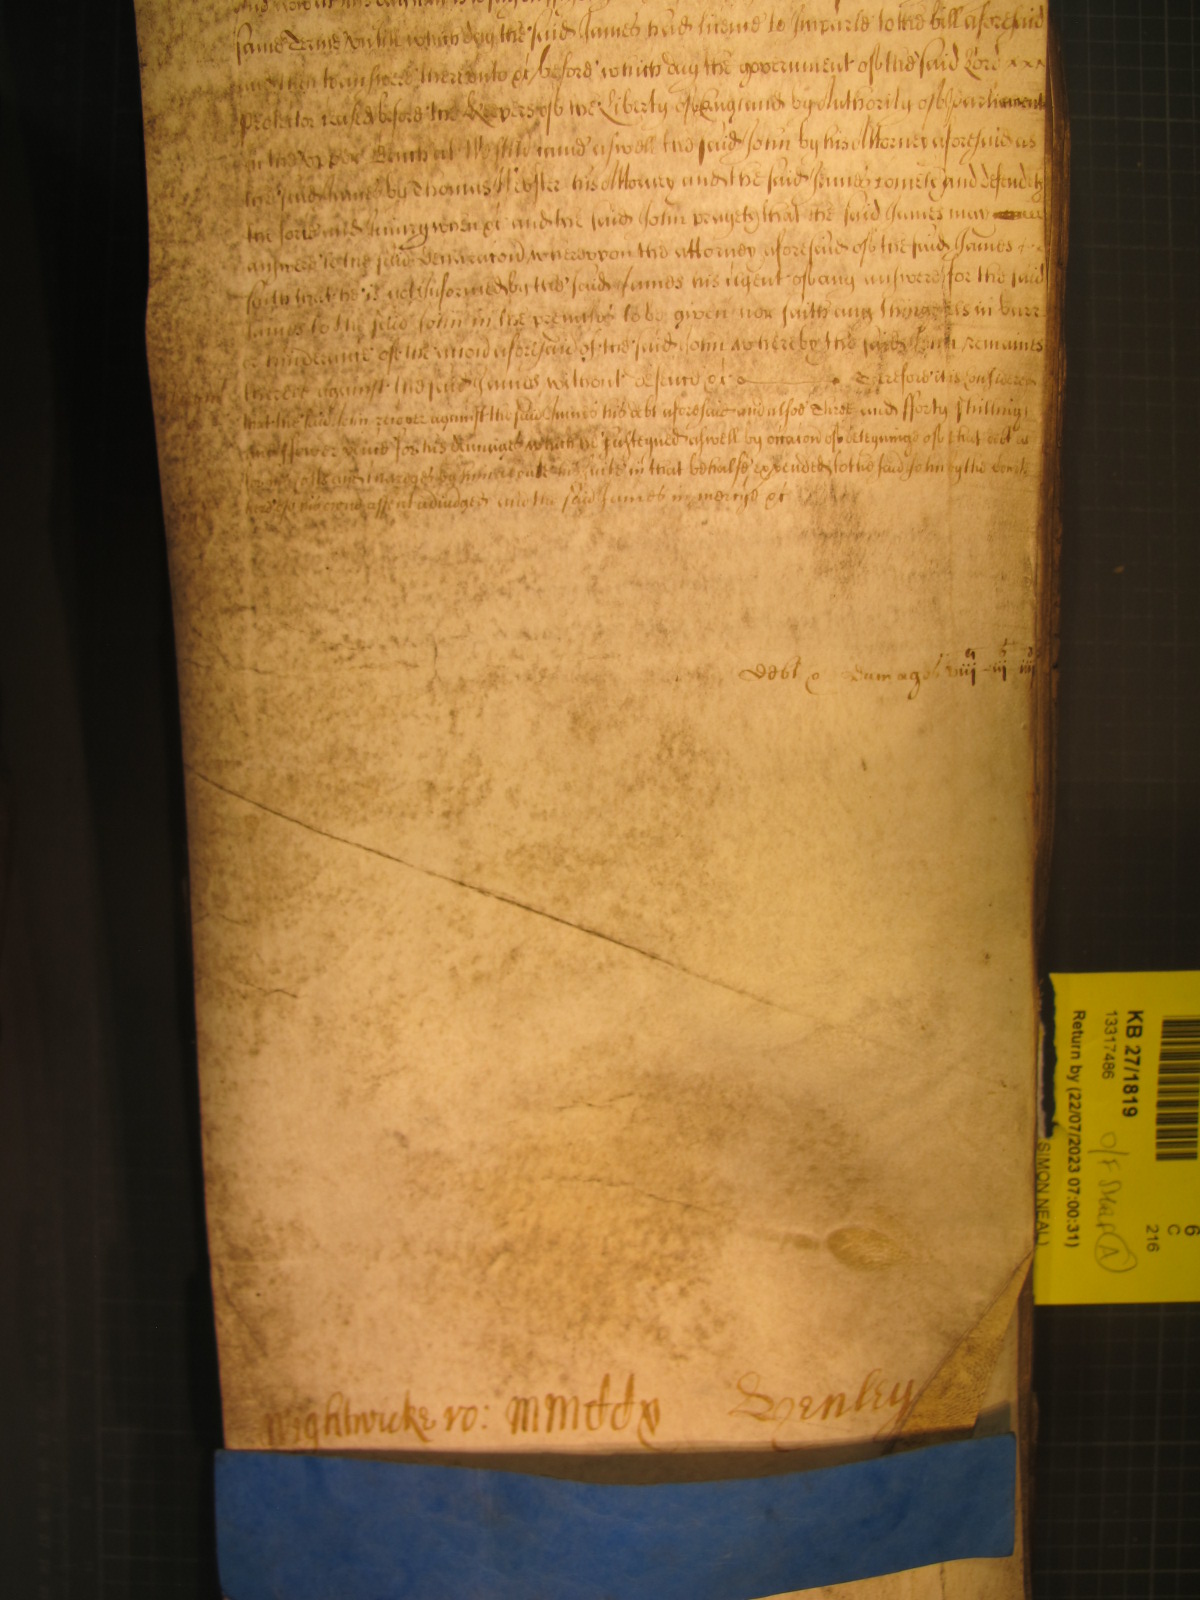 same Terme untill which day the said James had license to Imparle to the bill aforesaid
and then to answere thereunto &c before which day the government of the said Lord xxx
protector ceased before the Keepers of the Liberty of England by Authority of Parliament
in the upper Bench at Westm came aswell the said John by his Attorney aforesaid as
the said James by Thomas Webster his Attorney and the said James cometh and defendeth
the force and Iniury when &c and the said John prayeth that the said James may
answere to the said declaracion whereupon the attorney aforesaid of the said James
saith that he is not informed by the said James his client of any answere for the said
James to the said John in the premisses to be given nor saith any thing els in barr
or hinderance of the accion aforesaid of the said John whereby the said John remaines
therein against the said James without defence &c Therefore it is considered
that the said John recover against the said James his debt aforesaid and alsoe Three and fforty shillings
and ffower pence for his damages which he susteyned aswell by occasion of deteyninge of that debt as
for his costs and charges by him about his suite in that behalfe expended to the said John by the Court
here of his owne assent adiudged and the said James in mercye &c
Debt Damages
Wightwicke ro: mmddx Henley
KB 27/1819
13317486
Return by (22/07/2023 07:00:31)
(SIMON NEAL)
6
C
216